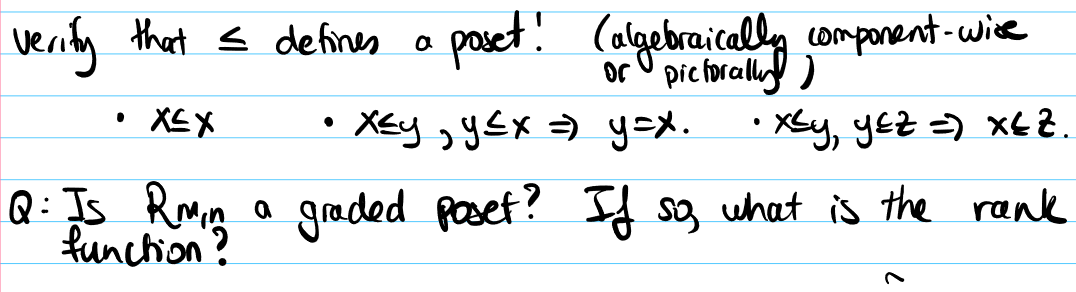 verify that ≤ defines a poset! (algebraically component-wise
or pictorally)
• x≤x • x≤y, y≤x ⇒ y=x. • x≤y, y≤z ⇒ x≤z.
Q: Is Rm,n a graded poset? If so, what is the rank
function?